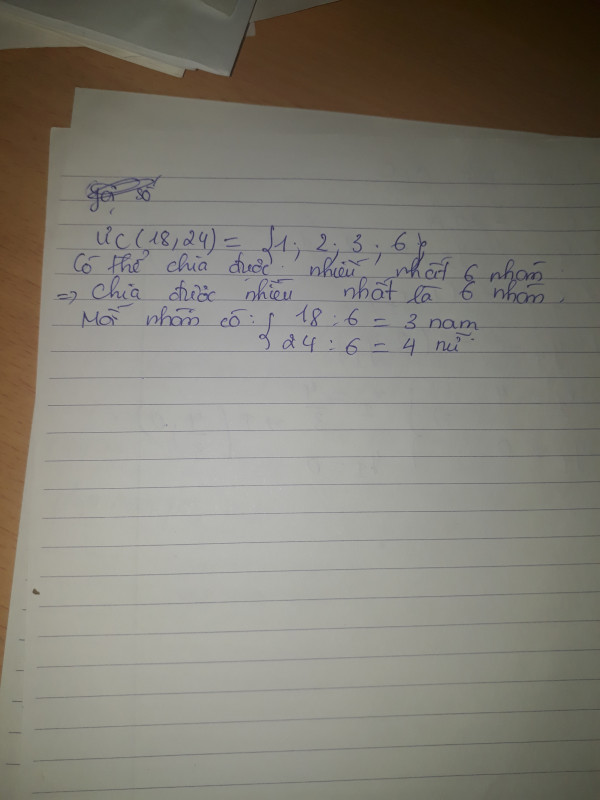 ƯC(18,24) = {1; 2; 3; 6}
Có thể chia được nhiều nhất 6 nhóm
=> Chia được nhiều nhất là 6 nhóm.
Mỗi nhóm có: { 18 : 6 = 3 nam
24 : 6 = 4 nữ